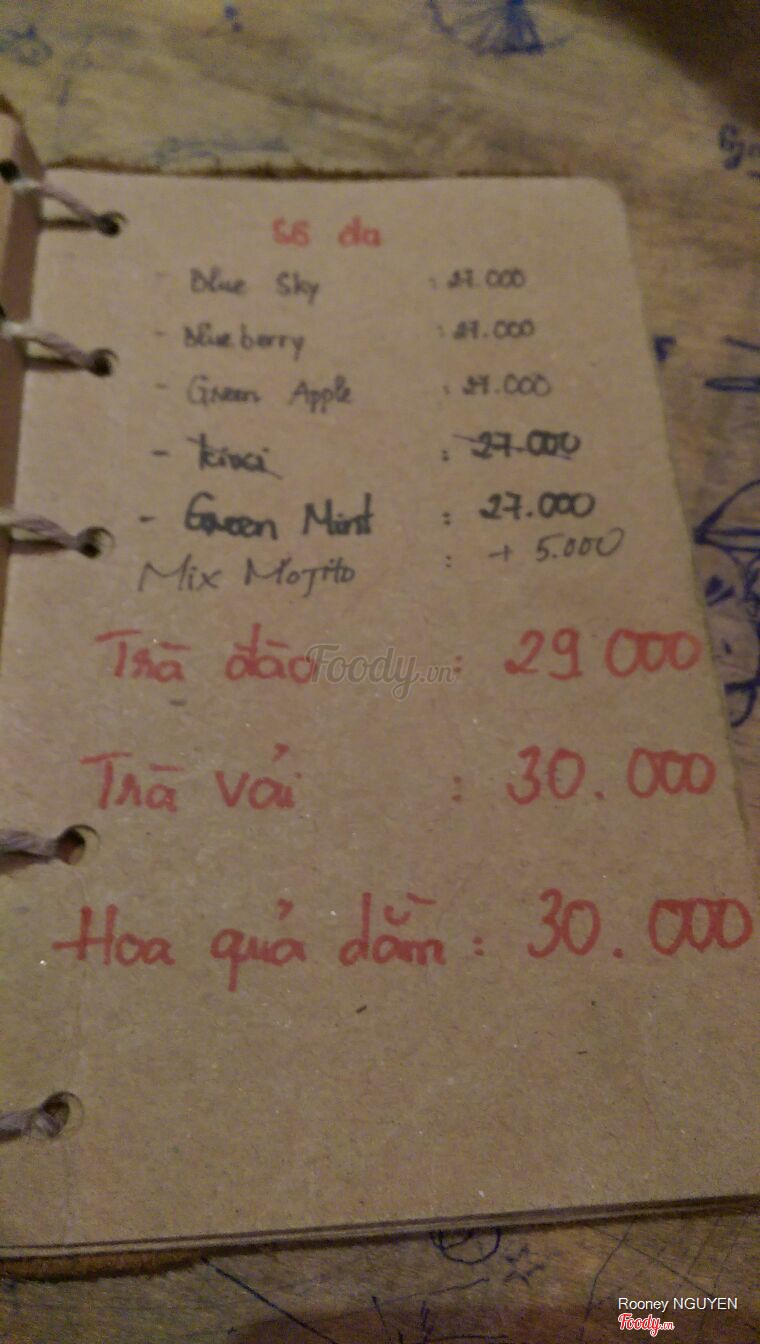 Sô đa
- Blue Sky : 27.000
- Blueberry : 27.000
- Green Apple : 27.000
- Kiwi : 27.000
- Green Mint : 27.000
Mix Mojito : + 5.000
Trà đào : 29 000
Trà vải : 30.000
Hoa quả dầm : 30.000
Foody.vn
Rooney NGUYEN
Foody.vn